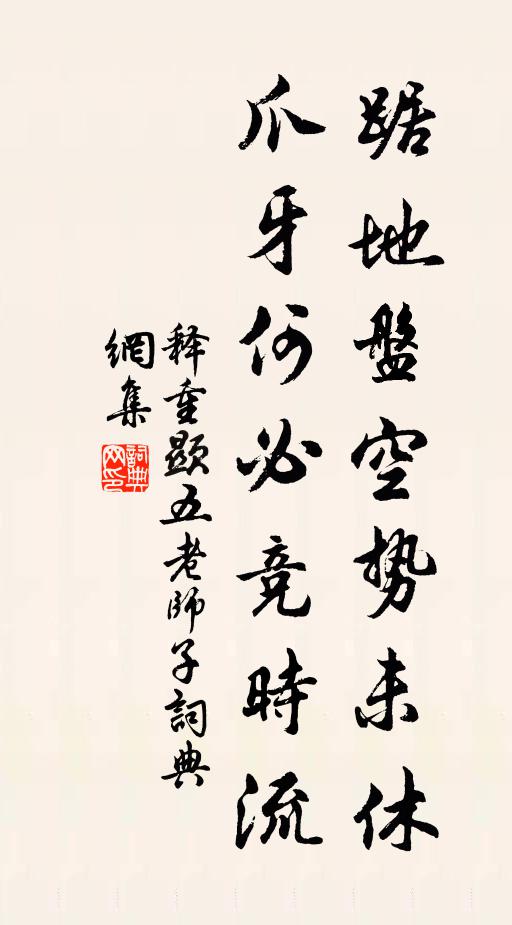 踞地盤空势未休
爪牙何必竞時流
释重顯五老師子詞典
網集
詞典网印